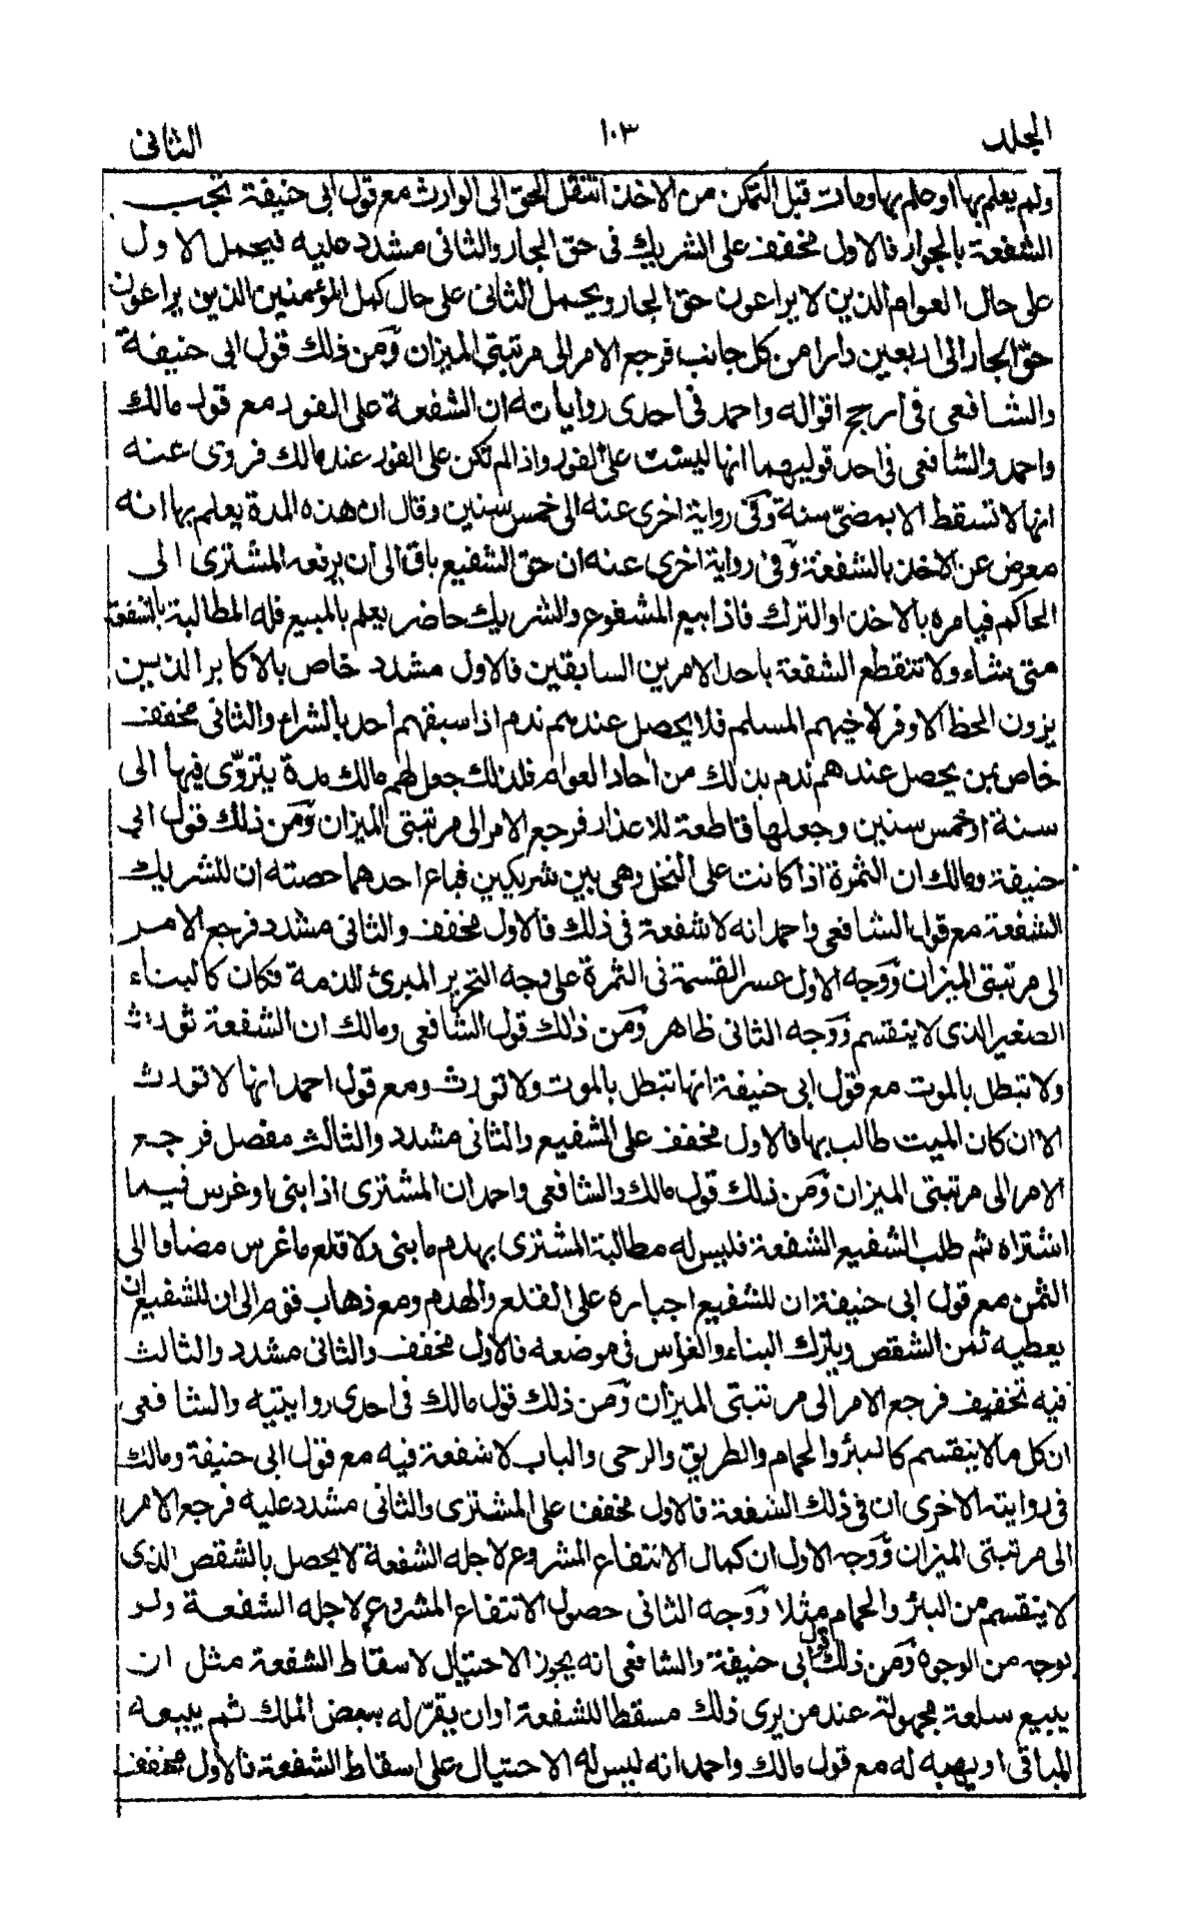 المجلد ١٠٣ الثانى
ولم يعلم بها او علم بها ومات قبل التمكن من الاخذ انتقل الحق الى الوارث مع قول ابى حنيفة تجب
الشفعة بالجوار فالاول مخفف على الشريك فى حق الجار والثانى مشدد عليه فيحمل الاول
على حال العوام الذين لا يراعون حق الجار ويحمل الثانى على حال كمل المؤمنين الذين يراعون
حق الجار الى اربعين دارا من كل جانب فرجع الامر الى مرتبتى الميزان ومن ذلك قول ابى حنيفة
والشافعى فى ارجح اقواله واحمد فى احدى رواياته ان الشفعة على الفور مع قول مالك
واحمد والشافعى فى احد قوليهما انها ليست على الفور واذا لم تكن على الفور عند مالك فروى عنه
انها لا تسقط الا بمضىّ سنة وفى رواية اخرى عنه الى خمس سنين وقال ان هذه المدة يعلم بها انه
معرض عن الاخذ بالشفعة وفى رواية اخرى عنه ان حق الشفيع باق الى ان يرفعه المشترى الى
الحاكم فيامره بالاخذ او الترك فاذا بيع المشفوع والشريك حاضر يعلم بالمبيع فله المطالبة بالشفعة
متى شاء ولا تنقطع الشفعة باحد الامرين السابقين فالاول مشدد خاص بالاكابر الذين
يرون الحظ الاوفر لاخيهم المسلم فلا يحصل عندهم ندم اذا سبقهم احد بالشراء والثانى مخفف
خاص بمن يحصل عندهم ندم بذلك من آحاد العوام فلذلك جعل لهم مالك مدة يتروّى فيها الى
سنة او خمس سنين وجعلها قاطعة للاعذار فرجع الامر الى مرتبتى الميزان ومن ذلك قول ابى
حنيفة ومالك ان الثمرة اذا كانت على النخل وهى بين شريكين فباع احدهما حصته ان للشريك
الشفعة مع قول الشافعى واحمد انه لا شفعة فى ذلك فالاول مخفف والثانى مشدد فرجع الامر
الى مرتبتى الميزان ووجه الاول عسر القسمة فى الثمرة على وجه التحرير المبرئ للذمة فكان كالبناء
الصغير الذى لا ينقسم ووجه الثانى ظاهر ومن ذلك قول الشافعى ومالك ان الشفعة تورث
ولا تبطل بالموت مع قول ابى حنيفة انها تبطل بالموت ولا تورث ومع قول احمد انها لا تورث
الا ان كان الميت طالب بها فالاول مخفف على الشفيع والثانى مشدد والثالث مفصل فرجع
الامر الى مرتبتى الميزان ومن ذلك قول مالك والشافعى واحمد ان المشترى اذا بنى او غرس فيما
اشتراه ثم طلب الشفيع الشفعة فليس له مطالبة المشترى بهدم ما بنى ولا قلع ما غرس مضافا الى
الثمن مع قول ابى حنيفة ان للشفيع اجباره على القلع والهدم ومع ذهاب قوم الى ان للشفيع ان
يعطيه ثمن الشقص ويترك البناء والغراس فى موضعه فالاول مخفف والثانى مشدد والثالث
فيه تخفيف فرجع الامر الى مرتبتى الميزان ومن ذلك قول مالك فى احدى روايتيه والشافعى
ان كل ما لا ينقسم كالبئر والحمام والطريق والرحى والباب لا شفعة فيه مع قول ابى حنيفة ومالك
فى روايته الاخرى ان فى ذلك الشفعة فالاول مخفف على المشترى والثانى مشدد عليه فرجع الامر
الى مرتبتى الميزان ووجه الاول ان كمال الانتفاع المشروع لاجله الشفعة لا يحصل بالشقص الذى
لا ينقسم من البئر والحمام مثلا ووجه الثانى حصول الانتفاع المشروع لاجله الشفعة ولو
بوجه من الوجوه ومن ذلك قول ابى حنيفة والشافعى انه يجوز الاحتيال لاسقاط الشفعة مثل ان
يبيع سلعة مجهولة عند من يرى ذلك مسقطا للشفعة او ان يقرّ له ببعض الملك ثم يبيعه
الباقى او يهبه له مع قول مالك واحمد انه ليس له الاحتيال على اسقاط الشفعة فالاول مخفف